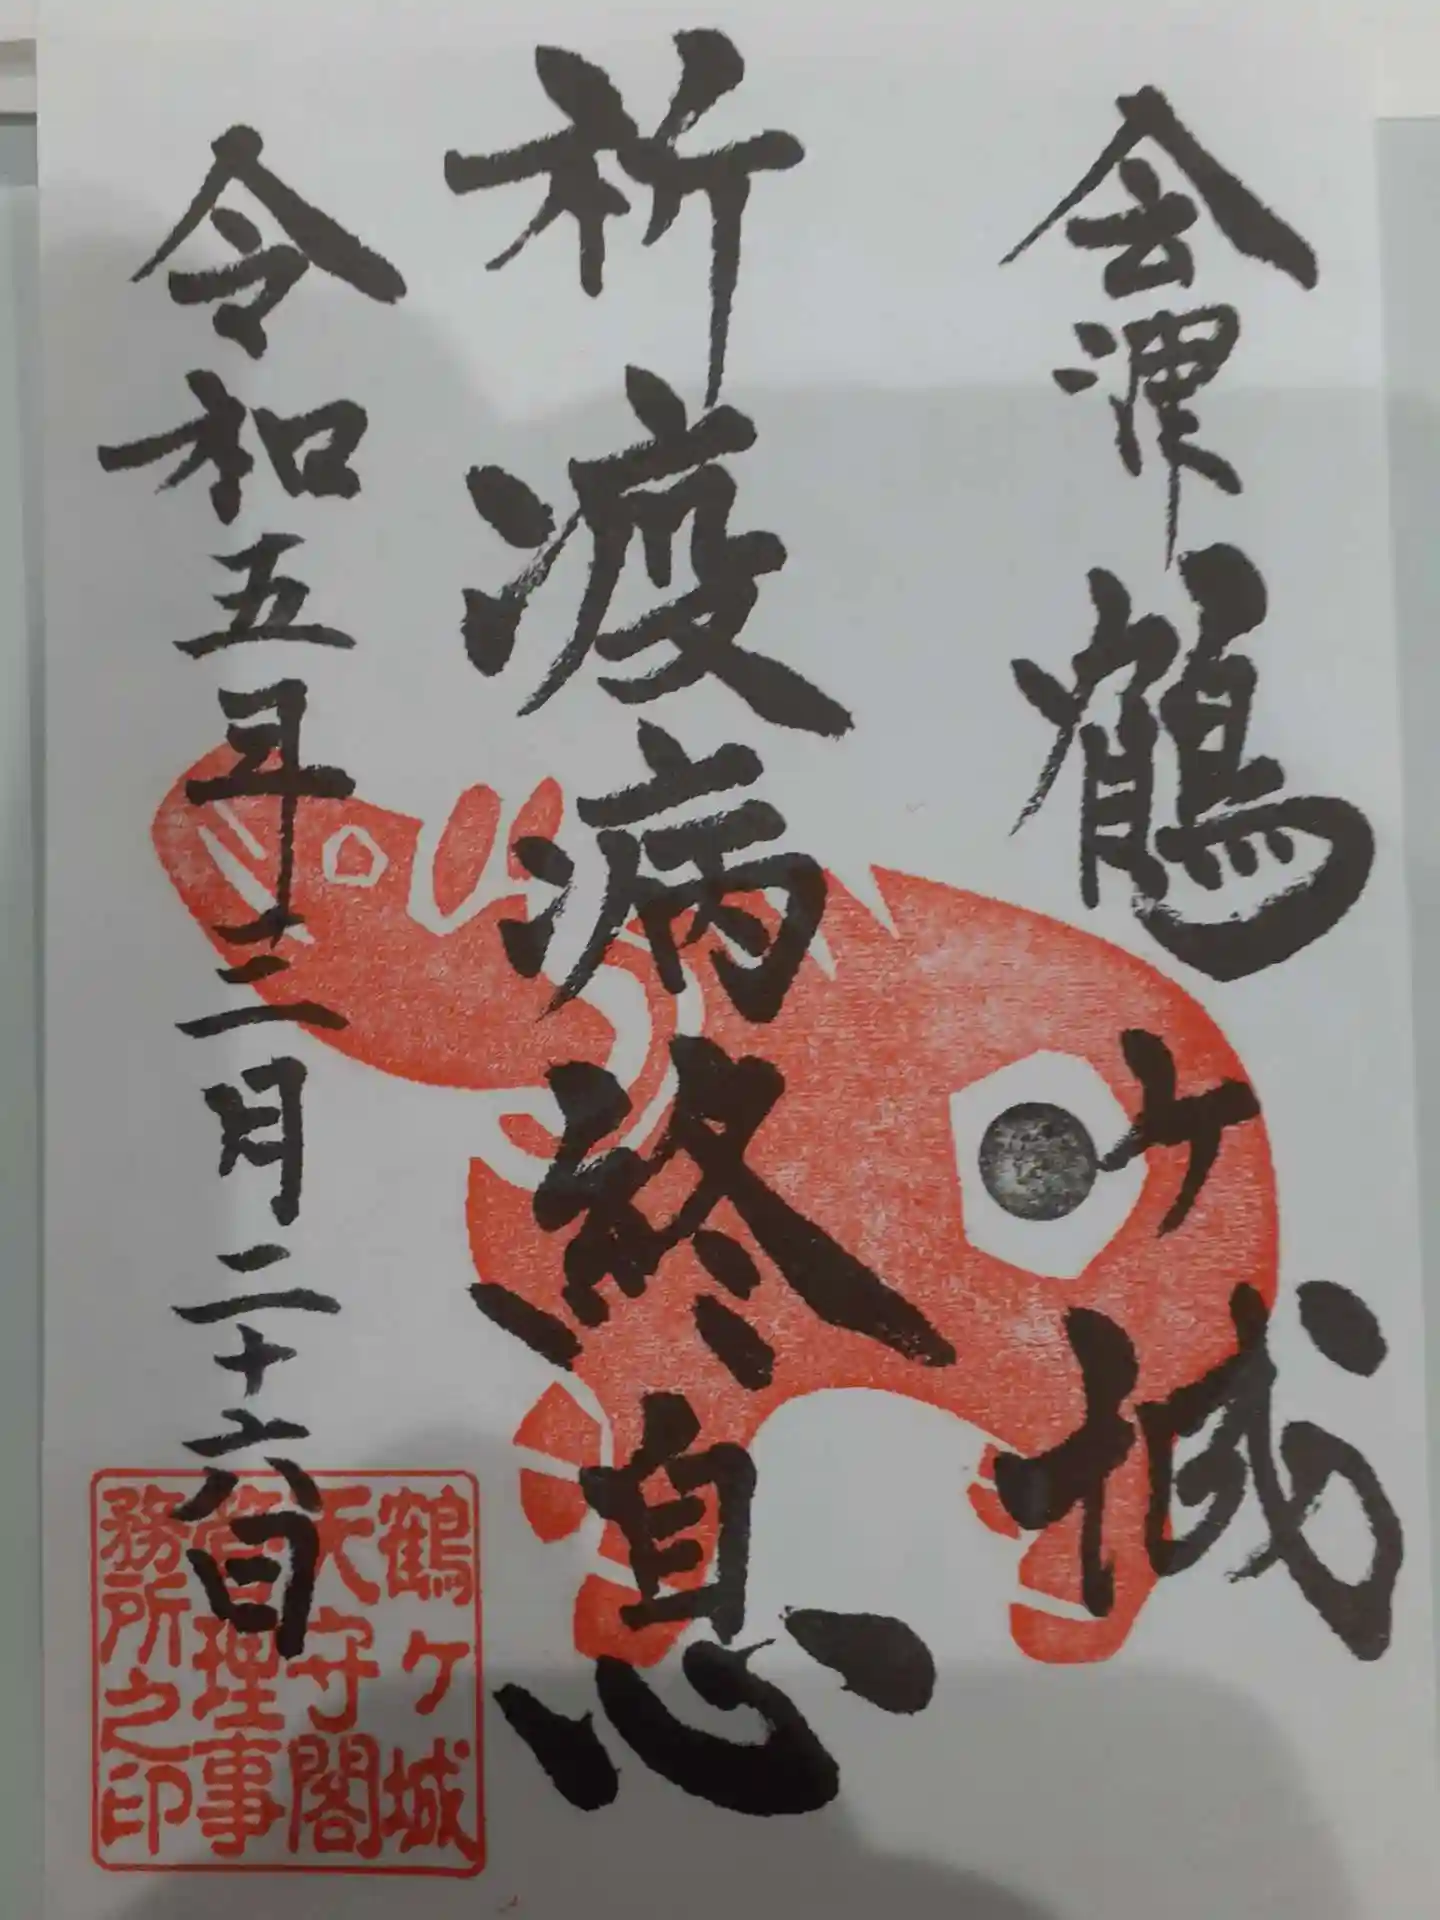 会津鶴ヶ城
祈疫病終息
令和五年十二月二十六日
鶴ヶ城
天守閣
管理事
務所之印